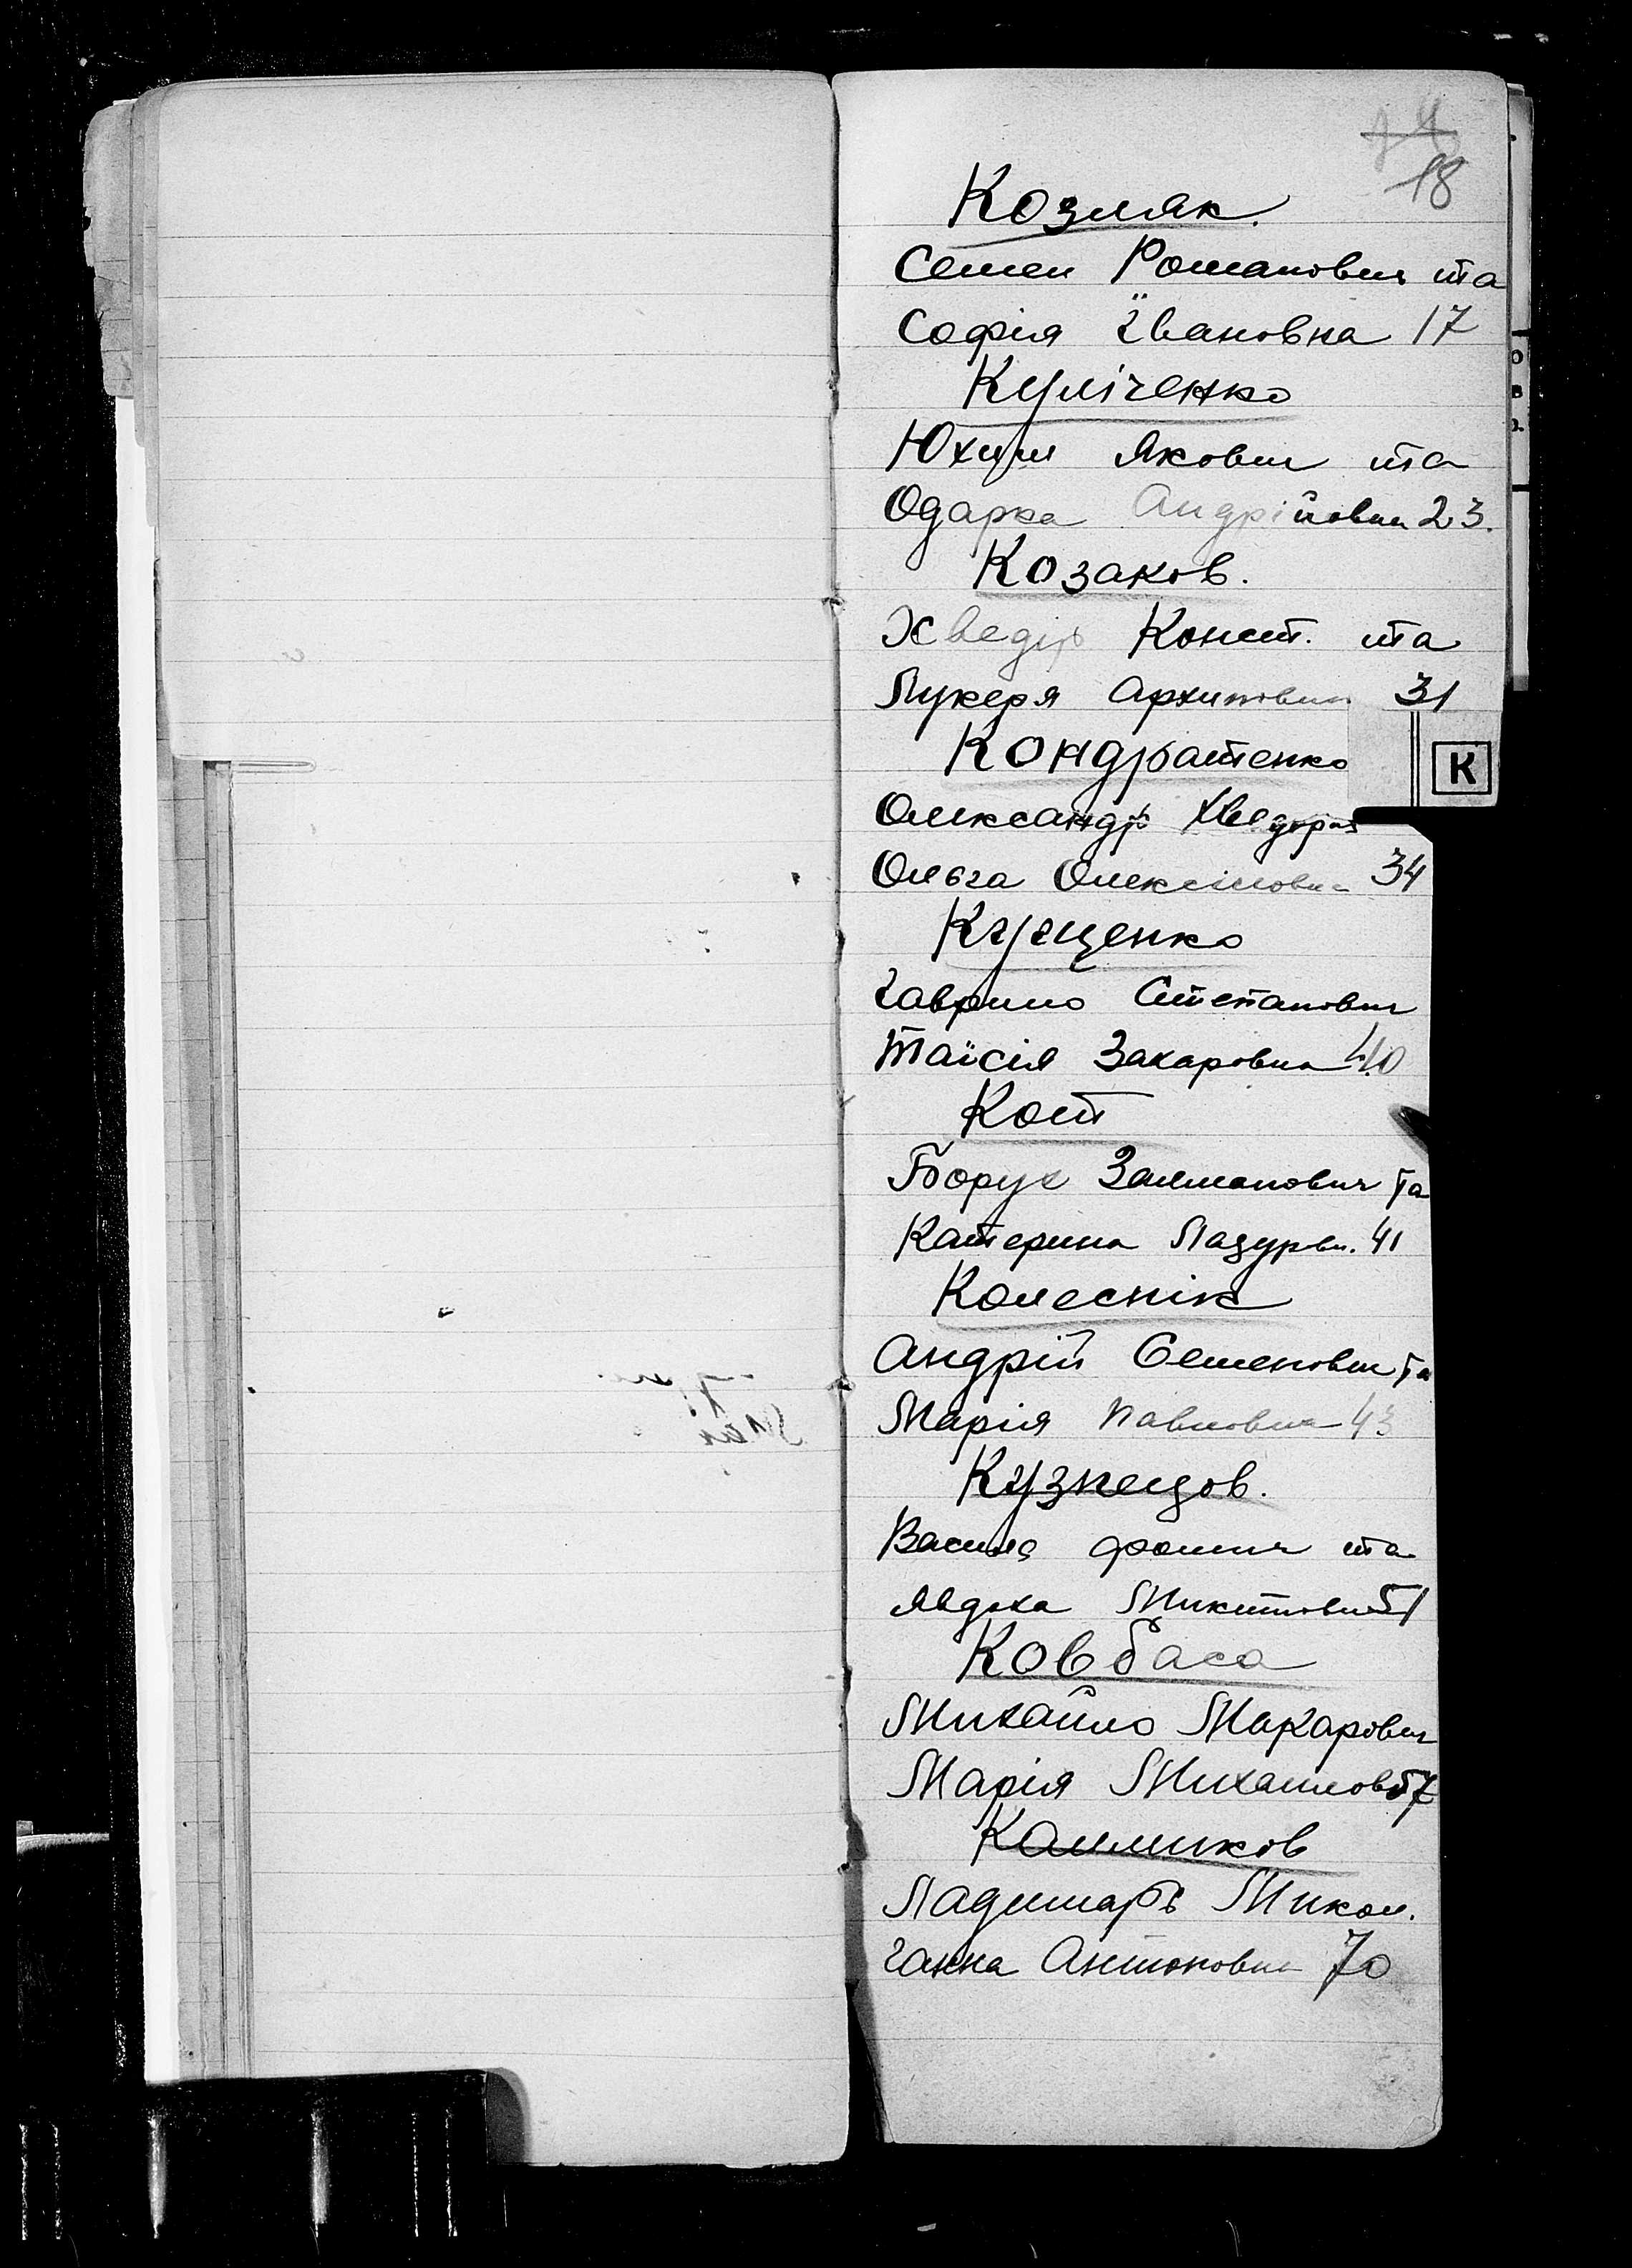 18
Козляк.
Семен Романович та
Софія Івановна 17
Куліченко
Юхим Якович та
Одарка Андрійовна 23.
Козаков.
Хведір Конст. та
Лукеря Архиповна 31
Кондратенко
К
Олександр Хведоров
Ольга Олексіїовна 34
Кущенко
Гаврило Степанович
Таїсія Захаровна 40
Кот
Борух Залманович та
Катерина Лазурвн. 41
Колеснік
Андрій Семенович та
Марія Павловна 43
Кузнецов.
Василь фомич та
Явдоха Микитовна 51
Ковбаса
Михайло Макарович
Марія Михайлов 57
Калмиков
Ладимаръ Микол.
Ганна Антоновна 70